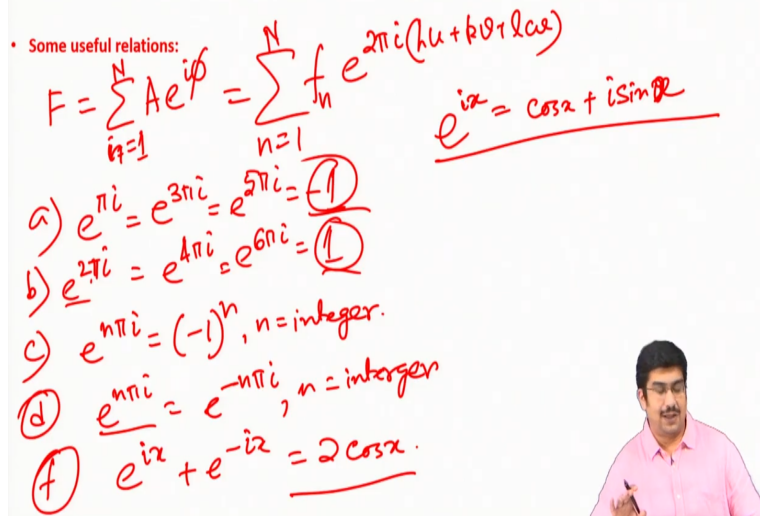 • Some useful relations:
F = ∑ᴺₙ₌₁ Ae^{iφ} = ∑ᴺₙ₌₁ fₙ e^{2πi(hu+kv+lw)}
e^{ix} = cosx + isinx
a) e^{πi} = e^{3πi} = e^{5πi} = -1
b) e^{2πi} = e^{4πi} = e^{6πi} = 1
c) e^{nπi} = (-1)ⁿ, n = integer.
d e^{nπi} = e^{-nπi}, n = interger
f e^{ix} + e^{-ix} = 2cosx.